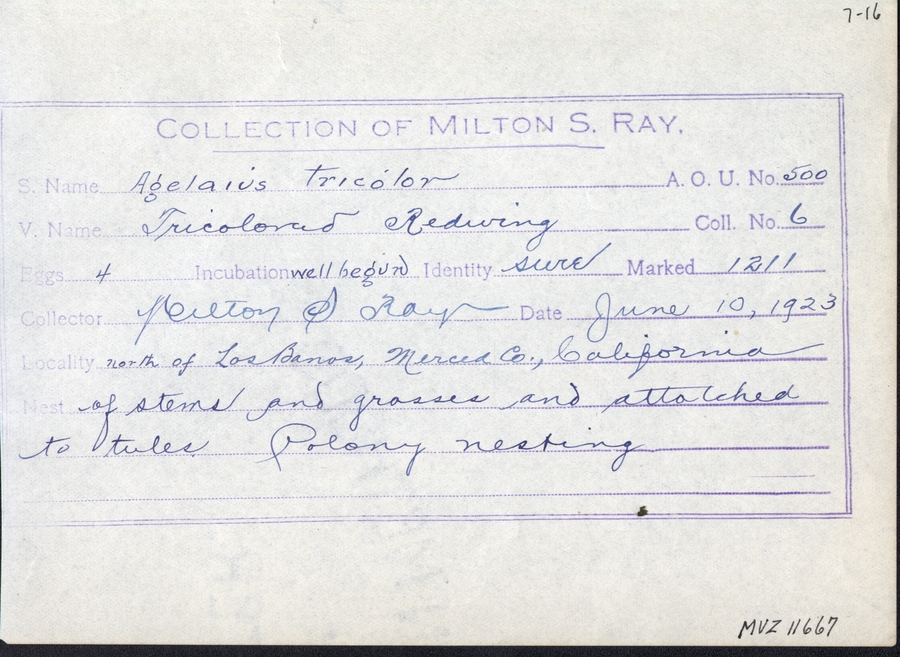 7-16
COLLECTION OF MILTON S. RAY.
S. Name Agelaius tricolor A. O. U. No. 500
V. Name Tricolored Redwing Coll. No. 6
Eggs 4 Incubation well begun Identity sure Marked 1211
Collector Milton S Ray Date June 10, 1923
Locality north of Los Banos, Merced Co., California
Nest of stems and grasses and attatched
to tules Colony nesting
MVZ 11667